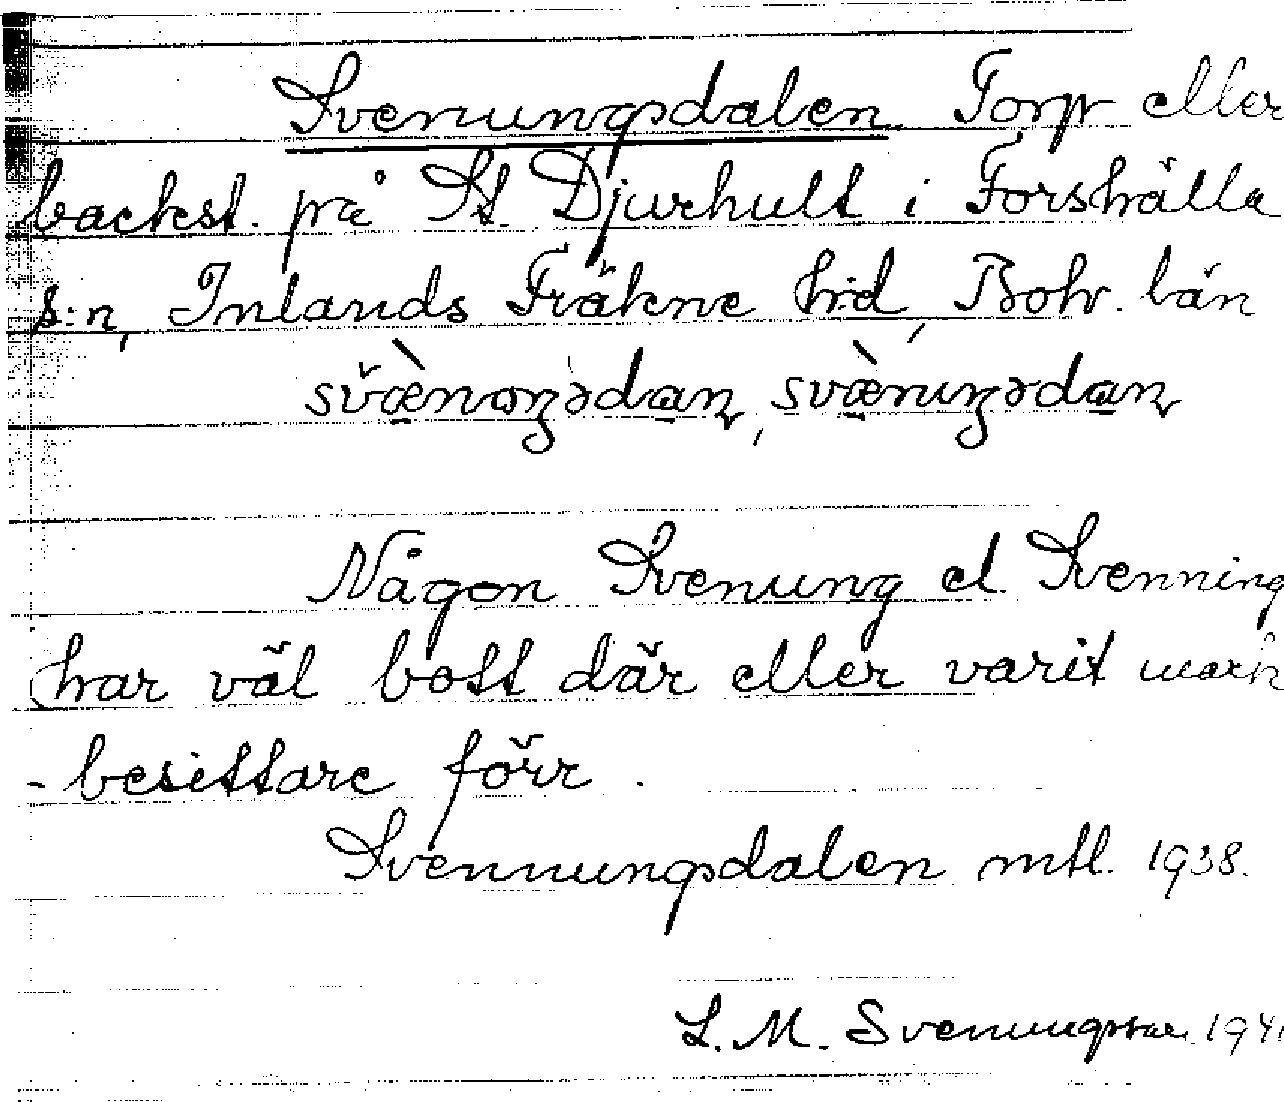 Svenungsdalen. Torp eller
backst. på St. Djurhult i Forshälla
s:n, Inlands Fräkne hd, Boh. län
svæ̀noŋsdan, svæ̀nuŋsdan
Någon Svenung el. Svenning
har väl bott där eller varit mark
-besittare förr.
Svennungsdalen mtl. 1938.
L. M. Svenungsson 1941